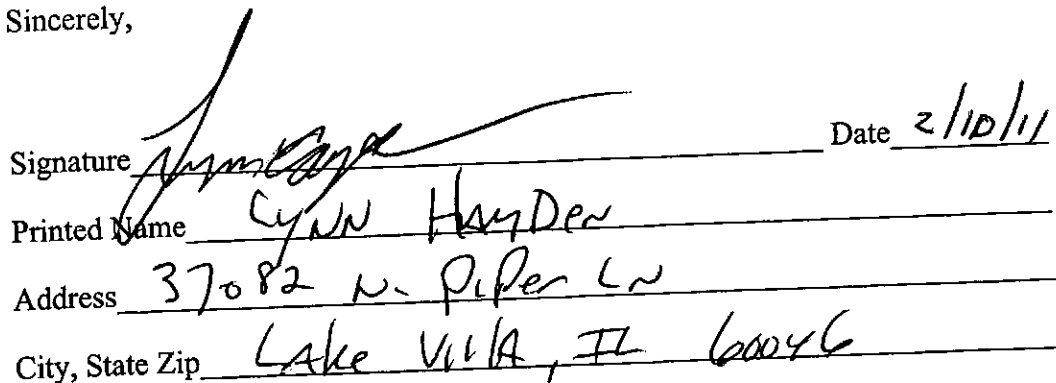 Sincerely,
Signature Date 2/10/11
Printed Name Lynn Hayden
Address 37082 N. Piper Ln
City, State Zip Lake Villa, IL 60046